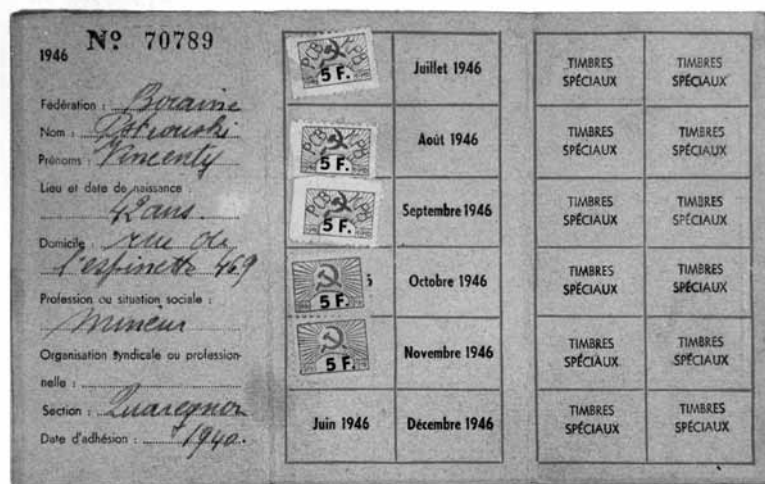 1946 Nº 70789
Fédération : Boraine
Nom : Ostrouski
Prénoms : Vincenty
Lieu et date de naissance :
42 ans.
Domicile : rue de
l'espinette 469
Profession ou situation sociale :
mineur
Organisation syndicale ou profession-
nelle :
Section : Quaregnon
Date d'adhésion : 1940.
PCB KPB
5 F.
Juillet 1946
PCB KPB
5 F.
Août 1946
PCB KPB
5 F.
Septembre 1946
5 F.
Octobre 1946
5 F.
Novembre 1946
Juin 1946
Décembre 1946
TIMBRES SPÉCIAUX
TIMBRES SPÉCIAUX
TIMBRES SPÉCIAUX
TIMBRES SPÉCIAUX
TIMBRES SPÉCIAUX
TIMBRES SPÉCIAUX
TIMBRES SPÉCIAUX
TIMBRES SPÉCIAUX
TIMBRES SPÉCIAUX
TIMBRES SPÉCIAUX
TIMBRES SPÉCIAUX
TIMBRES SPÉCIAUX